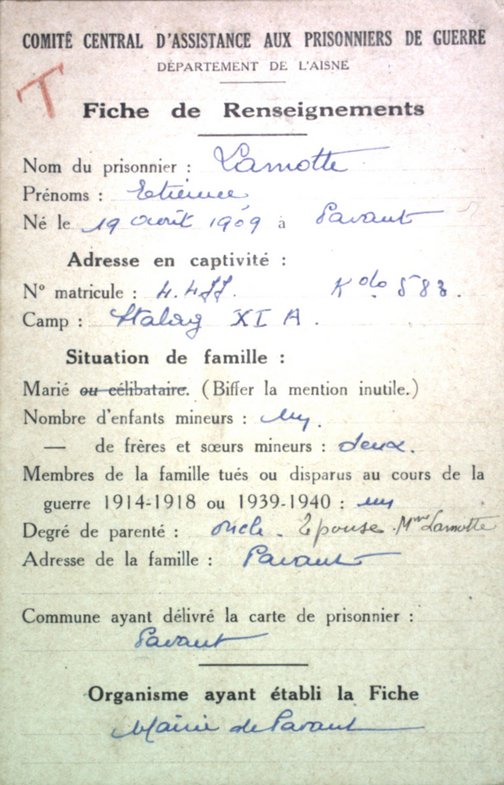 COMITÉ CENTRAL D'ASSISTANCE AUX PRISONNIERS DE GUERRE
DÉPARTEMENT DE L'AISNE
T
Fiche de Renseignements
Nom du prisonnier : Lamotte
Prénoms : Etienne
Né le 19 Août 1909 à Pavant
Adresse en captivité :
N° matricule : Kdo 583.
Camp : Stalag XI A.
Situation de famille :
Marié ou célibataire. (Biffer la mention inutile.)
Nombre d'enfants mineurs : un.
— de frères et sœurs mineurs : deux.
Membres de la famille tués ou disparus au cours de la
guerre 1914-1918 ou 1939-1940 : un
Degré de parenté : oncle. Epouse. Mme Lamotte
Adresse de la famille : Pavant
Commune ayant délivré la carte de prisonnier :
Pavant
Organisme ayant établi la Fiche
Mairie de Pavant